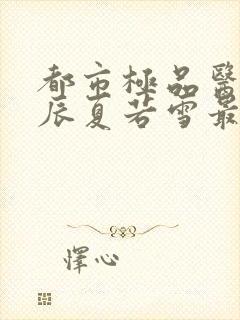 都市極品醫
辰夏若雪最
懌心